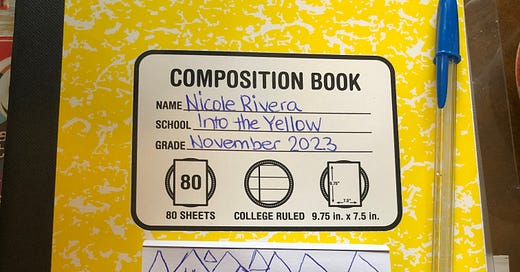 COMPOSITION BOOK
NAME Nicole Rivera
SCHOOL Into the Yellow
GRADE November 2023
80
9.75"
7.5"
80 SHEETS COLLEGE RULED 9.75 in. x 7.5 in.